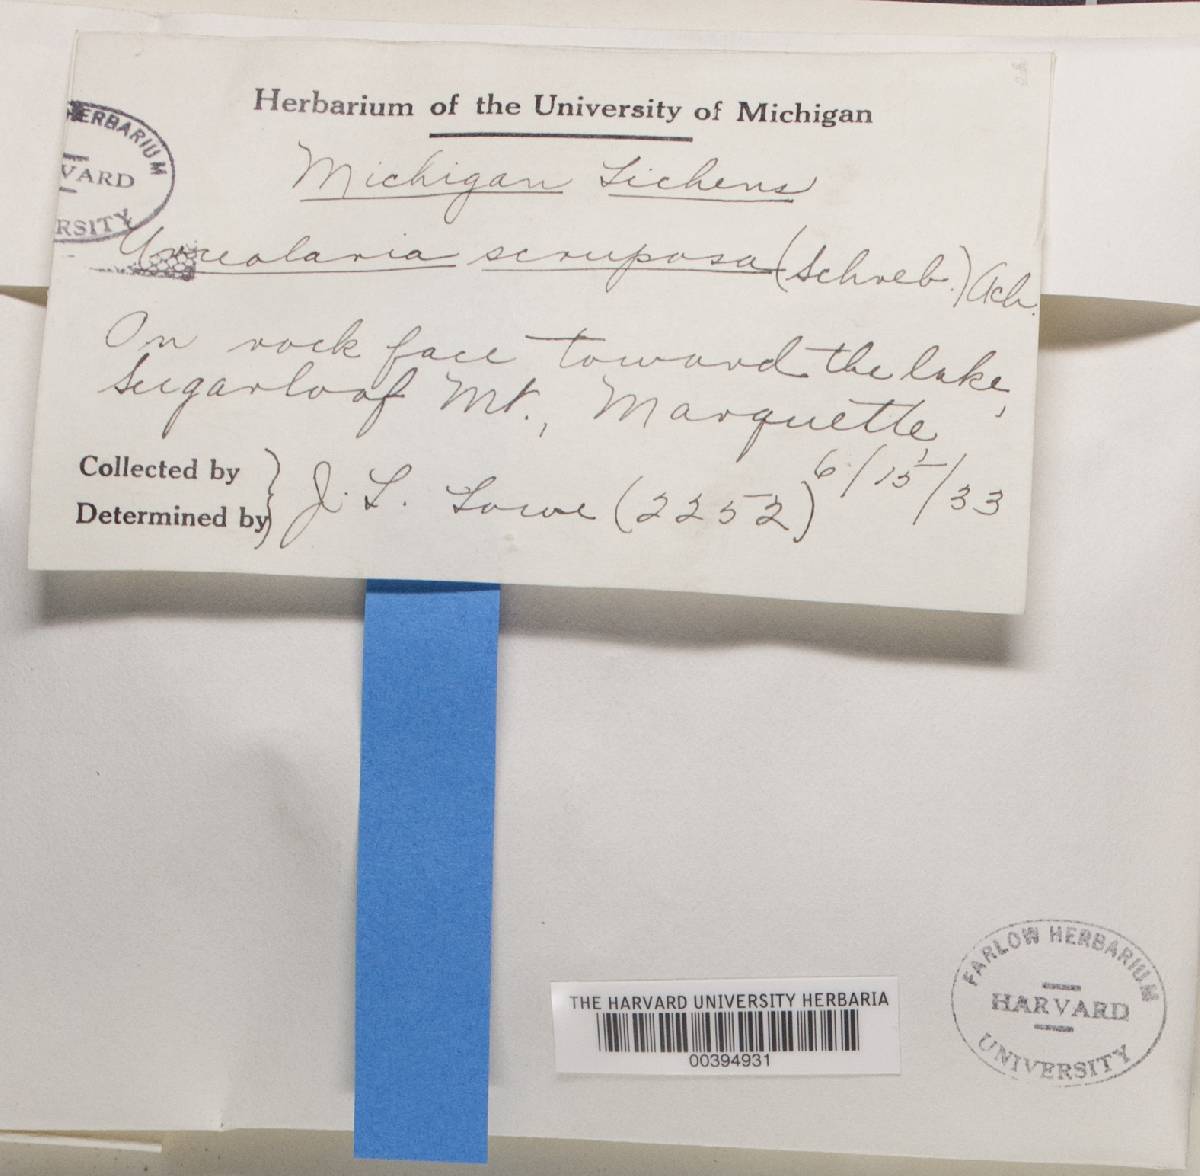 Herbarium of the University of Michigan
HERBARIUM
VARD
RSITY
Michigan Lichens
Urceolaria scruposa (Schreb.) Ach.
On rock face toward the lake,
Sugarloaf Mt., Marquette,
Collected by
Determined by
J. L. Lowe (2252) 6/15/33
THE HARVARD UNIVERSITY HERBARIA
00394931
FARLOW HERBARIUM
HARVARD
UNIVERSITY